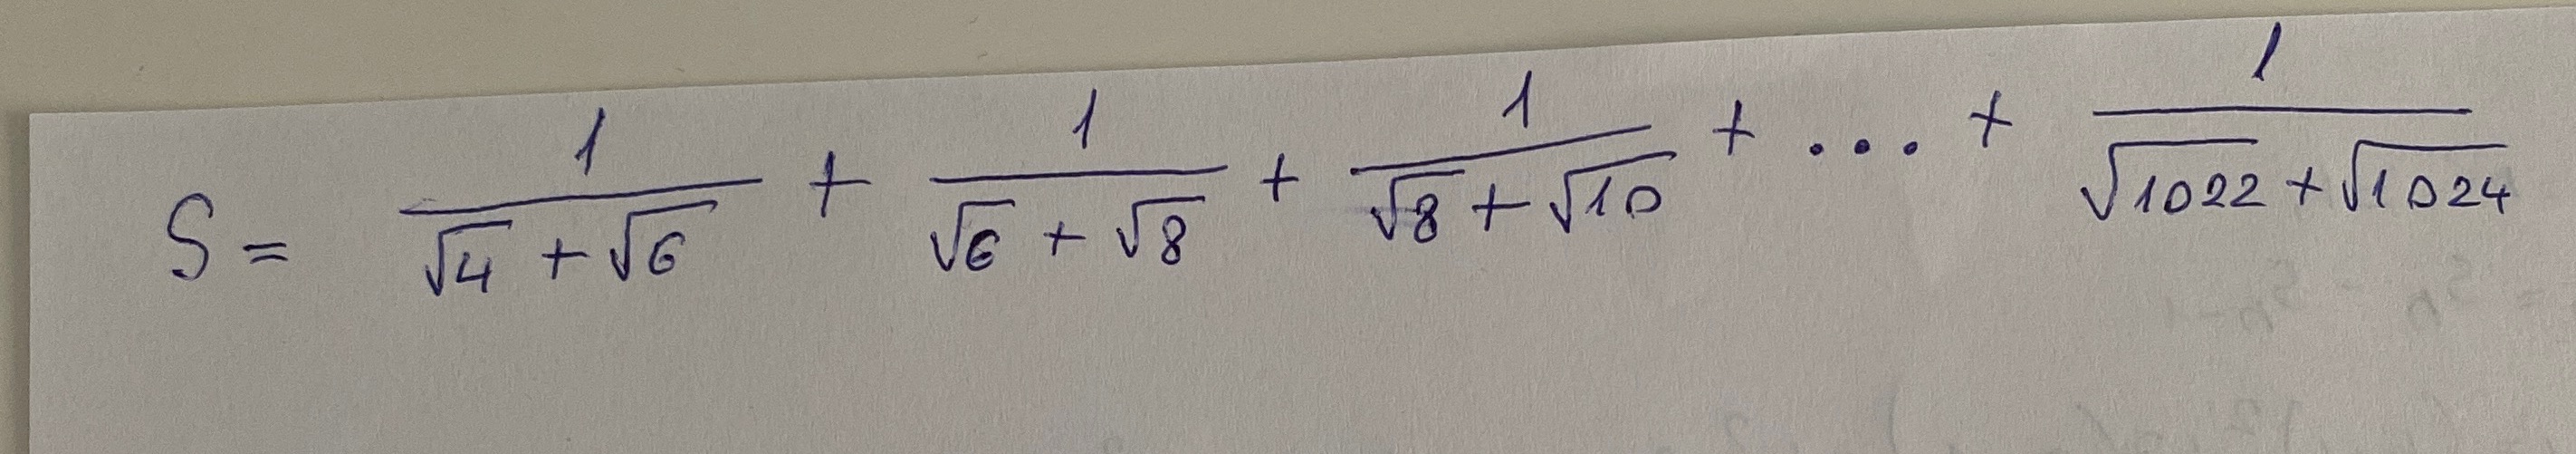 S = 1/(√4 + √6) + 1/(√6 + √8) + 1/(√8 + √10) + ... + 1/(√1022 + √1024)
= Sₙ - Sₙ₋₁